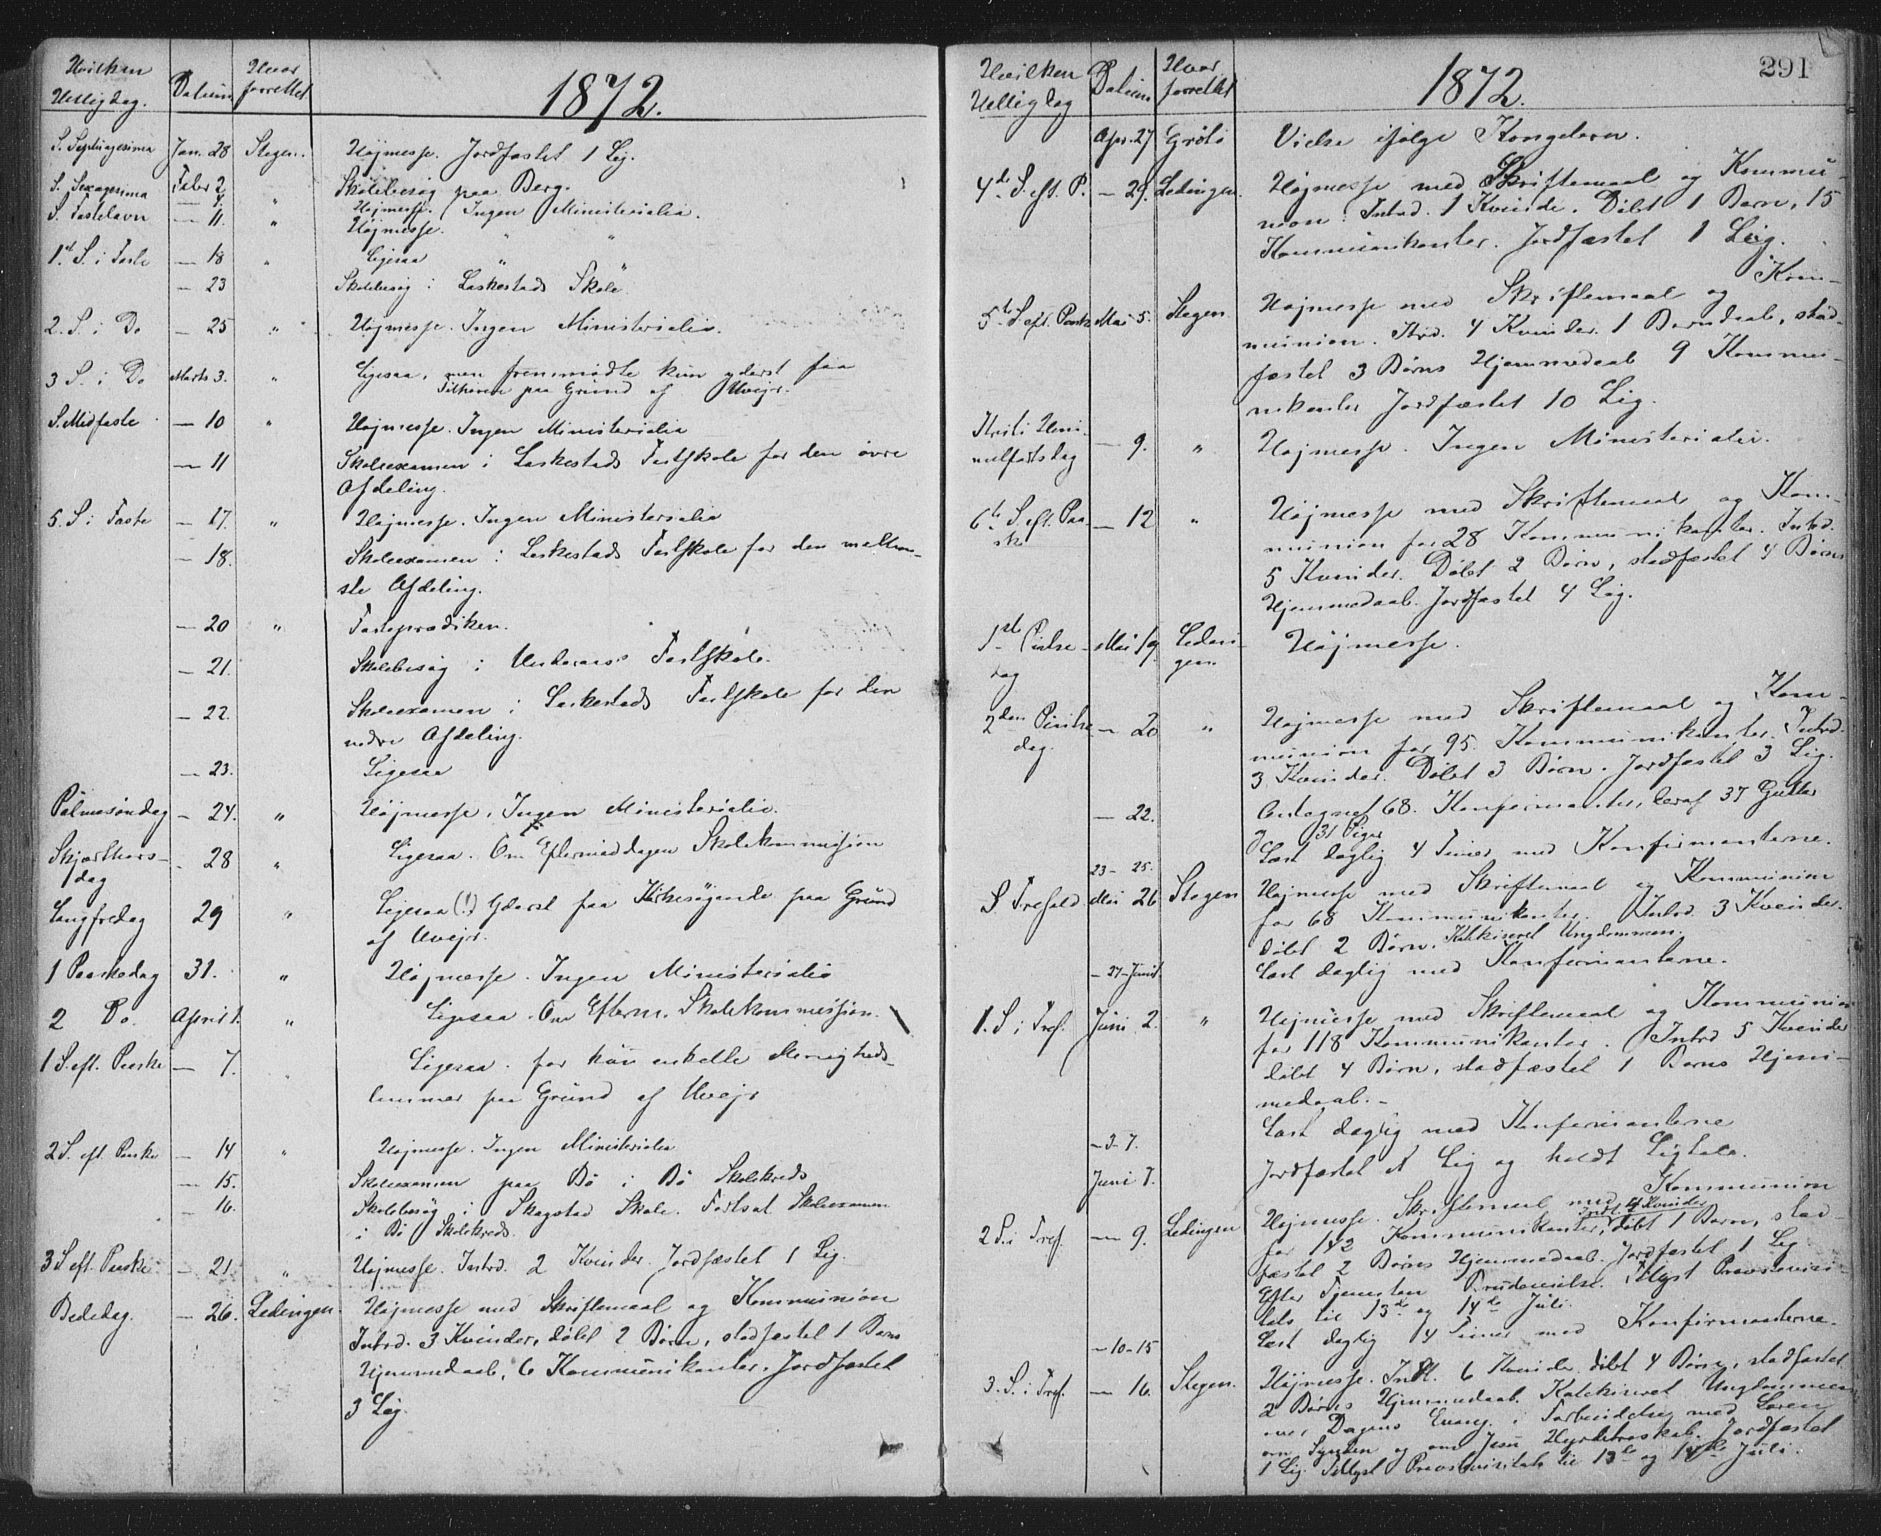 Hvilken Helligdag. Datum Hvor forrettet 1872.
S. Septuagesima Jan. 28 Stegen. Højmesse. Jordfæstet 1 Lig.
Febr 2 Skolebesøg paa Berg.
S. Sexagesima — 4. " Højmesse. Ingen Ministerialia.
S. Fastelavn — 11. " Højmesse. " "
1st S. i Faste — 18 " Ligesaa " "
— 23 Skolebesøg i Laskestads Skole.
2. S. i Do — 25 " Højmesse. Ingen Ministerialia.
3 S. i Do Marts 3. " Ligesaa, men fremmødte kun yderst faa
Tilhørere paa Grund af Uvejr.
S. Midfaste — 10 " Højmesse. Ingen Ministerialia
— 11 Skoleexamen i Laskestads Fastskole for den øvre
Afdeling.
5. S i Faste — 17. " Højmesse. Ingen Ministerialia
— 18. Skoleexamen i Laskestads Fastskole for den mellem-
ste Afdeling.
— 20 " Fasteprædiken.
— 21. Skolebesøg i Fastskole.
— 22. Skoleexamen i Laskestads Fastskole for den
nedre Afdeling.
— 23. Ligesaa
Palmesøndag — 24. " Højmesse. Ingen Ministerialia.
Skjærthors-
dag - 28 " Ligesaa. Om Eftermiddagen Skolekommission
Langfredag 29 " Ligesaa (!) Yderst faa Kirkesøgende paa Grund
af Uvejr.
1 Paaskedag 31. " Højmesse. Ingen Ministerialia
2 Do. April 1. " Ligesaa. Om Efterm. Skolekommission.
1 S. eft. Paaske — 7. Ligesaa. for kun enkelte Menigheds-
lemmer paa Grund af Uvejr
2 S. eft. Paaske — 14 " Højmesse. Ingen Ministerialia
— 15. Skoleexamen paa Bø i Bø Skolekreds
— 16. Skolebesøg i Skagstad Skole. Fortsat Skoleexamen
i Bø Skolekreds.
3 S eft. Paaske — 21 " Højmesse. Introd. 2 Kvinder. Jordfæstet 1 Lig.
Bededag. — 26. Lødingen. Højmesse med Skriftemaal og Kommunion
Introd. 3 Kvinder, døbt 2 Børn, stadfæstet 1 Barns
Hjemmedaab, 6 Kommunikanter. Jordfæstet
3 Lig.
Hvilken Helligdag Datum Hvor forrettet 1872. 291
Apr. 27 Grøtø Vielse ifølge Kongebrev.
4de S. eft. P. — 28. Ledingen. Højmesse med Skriftemaal og Kommu-
nion. Introd. 1 Kvinde. Døbt 1 Barn, 15
Kommunikanter. Jordfæstet 1 Lig.
5te S. eft. Paask Mai 5. Stegen Højmesse med Skriftemaal og Kom-
munion. Itrd. 4 Kvinder. 1 Barndaab, stad-
fæstet 3 Børns Hjemmedaab 9 Kommu-
nikanter Jordfæstet 10 Lig.
Kristi Him-
melfartsdag — 9. " Højmesse. Ingen Ministerialia.
6te S. eft. Paa-
ske — 12 " Højmesse med Skriftemaal og Kom-
munion for 28 Kommunikanter. Introd.
5 Kvinder. Døbt 2 Børn, stadfæstet 4 Børns
Hjemmedaab. Jordfæstet 4 Lig.
1ste Pintse-
dag Mai 19 Ledin-
gen. Højmesse.
2den Pintse
dag. — 20 " Højmesse med Skriftemaal og Kom-
munion for 95 Kommunikanter. Introd.
3 Kvinder. Døbt 3 Børn. Jordfæstet 3 Lig.
— 22. Antaget 68. Konfirmanter, heraf 37 Gutter
og 31 Piger
23 - 25. Læst daglig 4 Timer med Konfirmanterne.
S. Trefold. Mai 26 Stegen Højmesse med Skriftemaal og Kommunion
for 68 Kommunikanter. Introd. 3 Kvinder.
Døbt 2 Børn. Katekiseret Ungdommen.
— 27 - Juni 1. Læst daglig med Konfirmanterne.
1. S. i Tref. Juni 2. " Højmesse med Skriftemaal og Kommunion
for 118 Kommunikanter. Introd 5 Kvinder
døbt 4 Børn, stadfæstet 1 Barns Hjem-
medaab. -
— 3 - 7. Læst daglig med Konfirmanterne
Juni 7. Jordfæstet et Lig og holdt Ligtale.
2 S. i Tref. — 9. Ledingen Højmesse. Skriftemaal med Kommunion
for 142 Kommunikanter, Indl. 4 Kvinder, døbt 1 Barn, stad-
fæstet 2 Børns Hjemmedaab. Jordfæstet 1 Lig
Efter Tjenesten Brudevielse. Tillyst Provsevisi-
tats til 13de og 14de Juli.
— 10 - 15 Læst daglig 4 Timer med Konfirmanterne.
3. S. i Tref. — 16. Stegen. Højmesse. Indl. 6 Kvinder, døbt 4 Børn, stadfæstet
2 Børns Hjemmedaab. Katekiseret Ungdommen
over Dagens Evang. i Forbindelse med Læren
om Synden og om Jesu Hyrdetroskab. Jordfæstet
1 Lig. Tillyst Provsevisitats til 13de og 14de Juli.